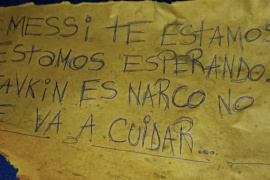 MESSI TE ESTAMOS
ESTAMOS ESPERANDO.
AVKIN ES NARCO NO
E VA A CUIDAR...